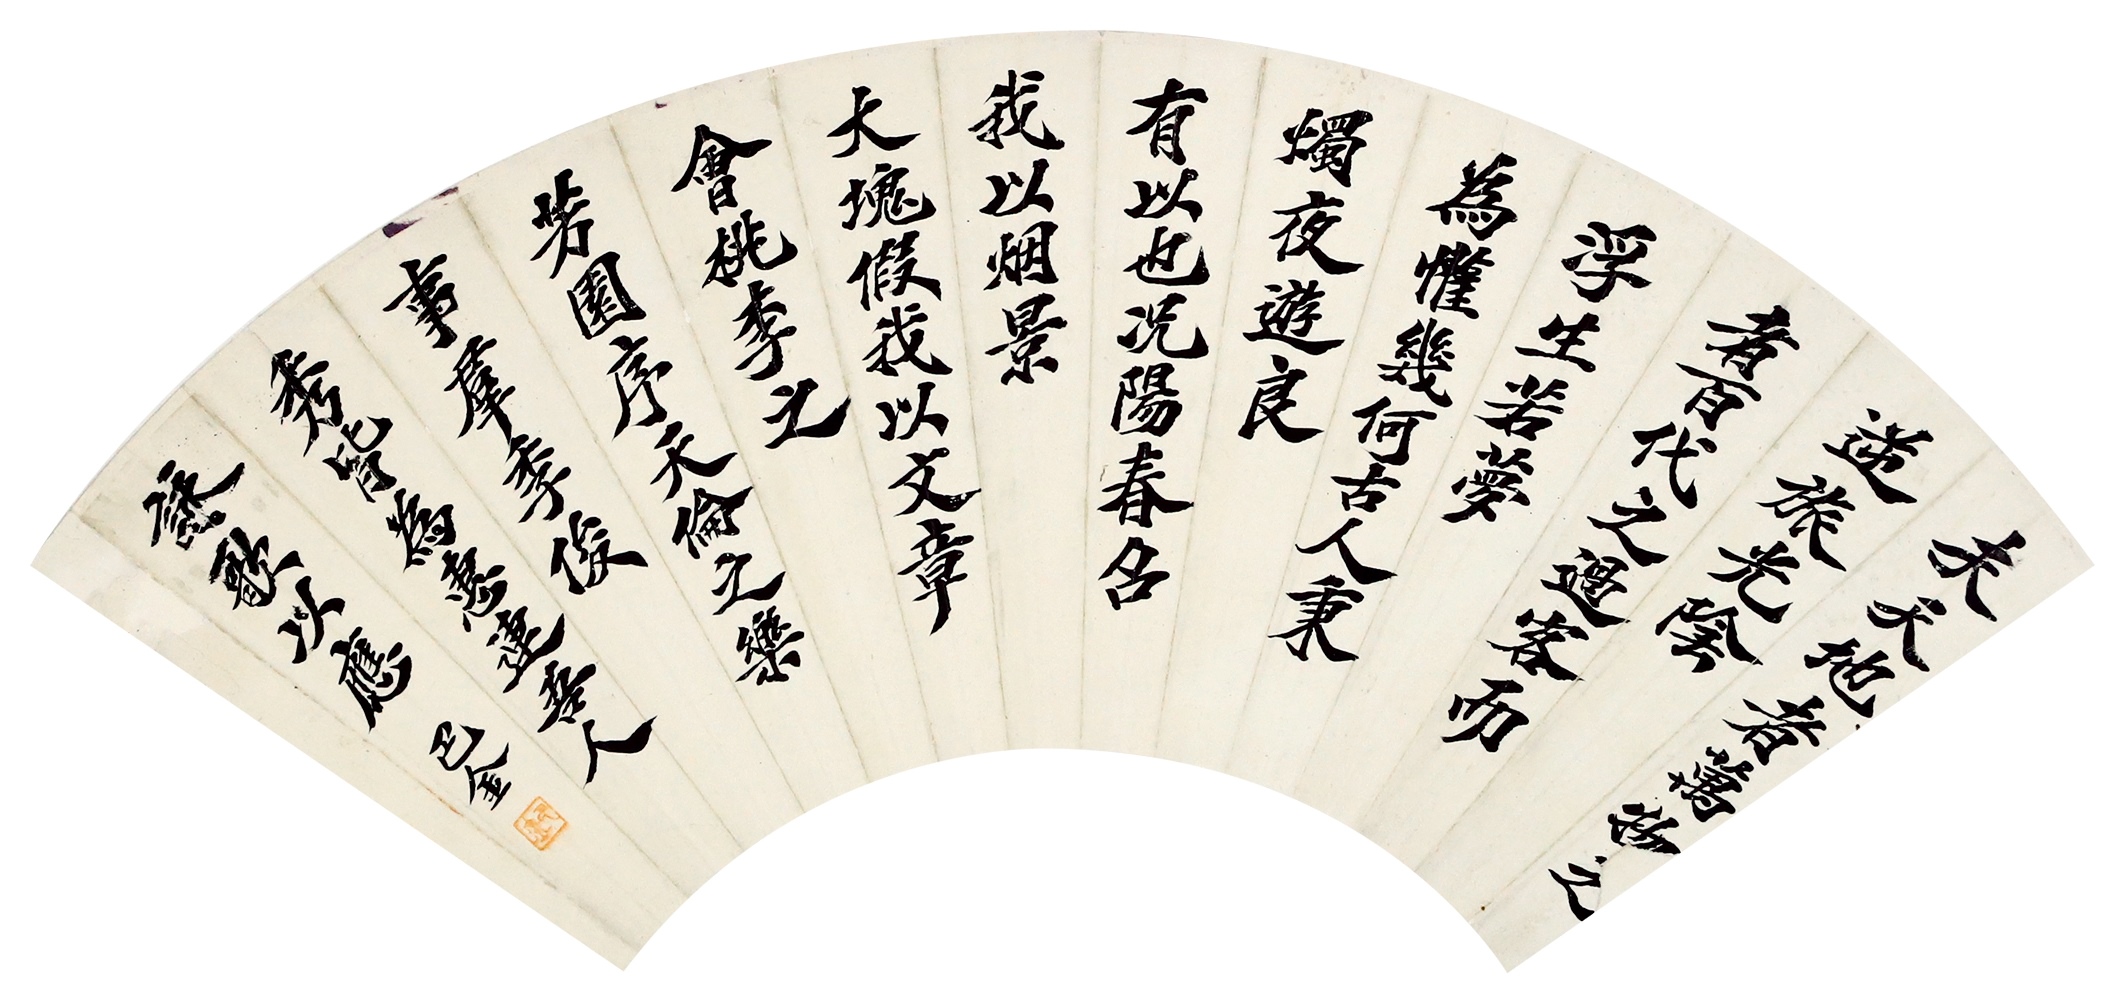 夫天地者萬物之
逆旅光陰
者百代之過客而
浮生若夢
為懽幾何古人秉
燭夜遊良
有以也况陽春召
我以烟景
大塊假我以文章
會桃李之
芳園序天倫之樂
事羣季俊
秀皆為惠連吾人
詠歌以應 巴金